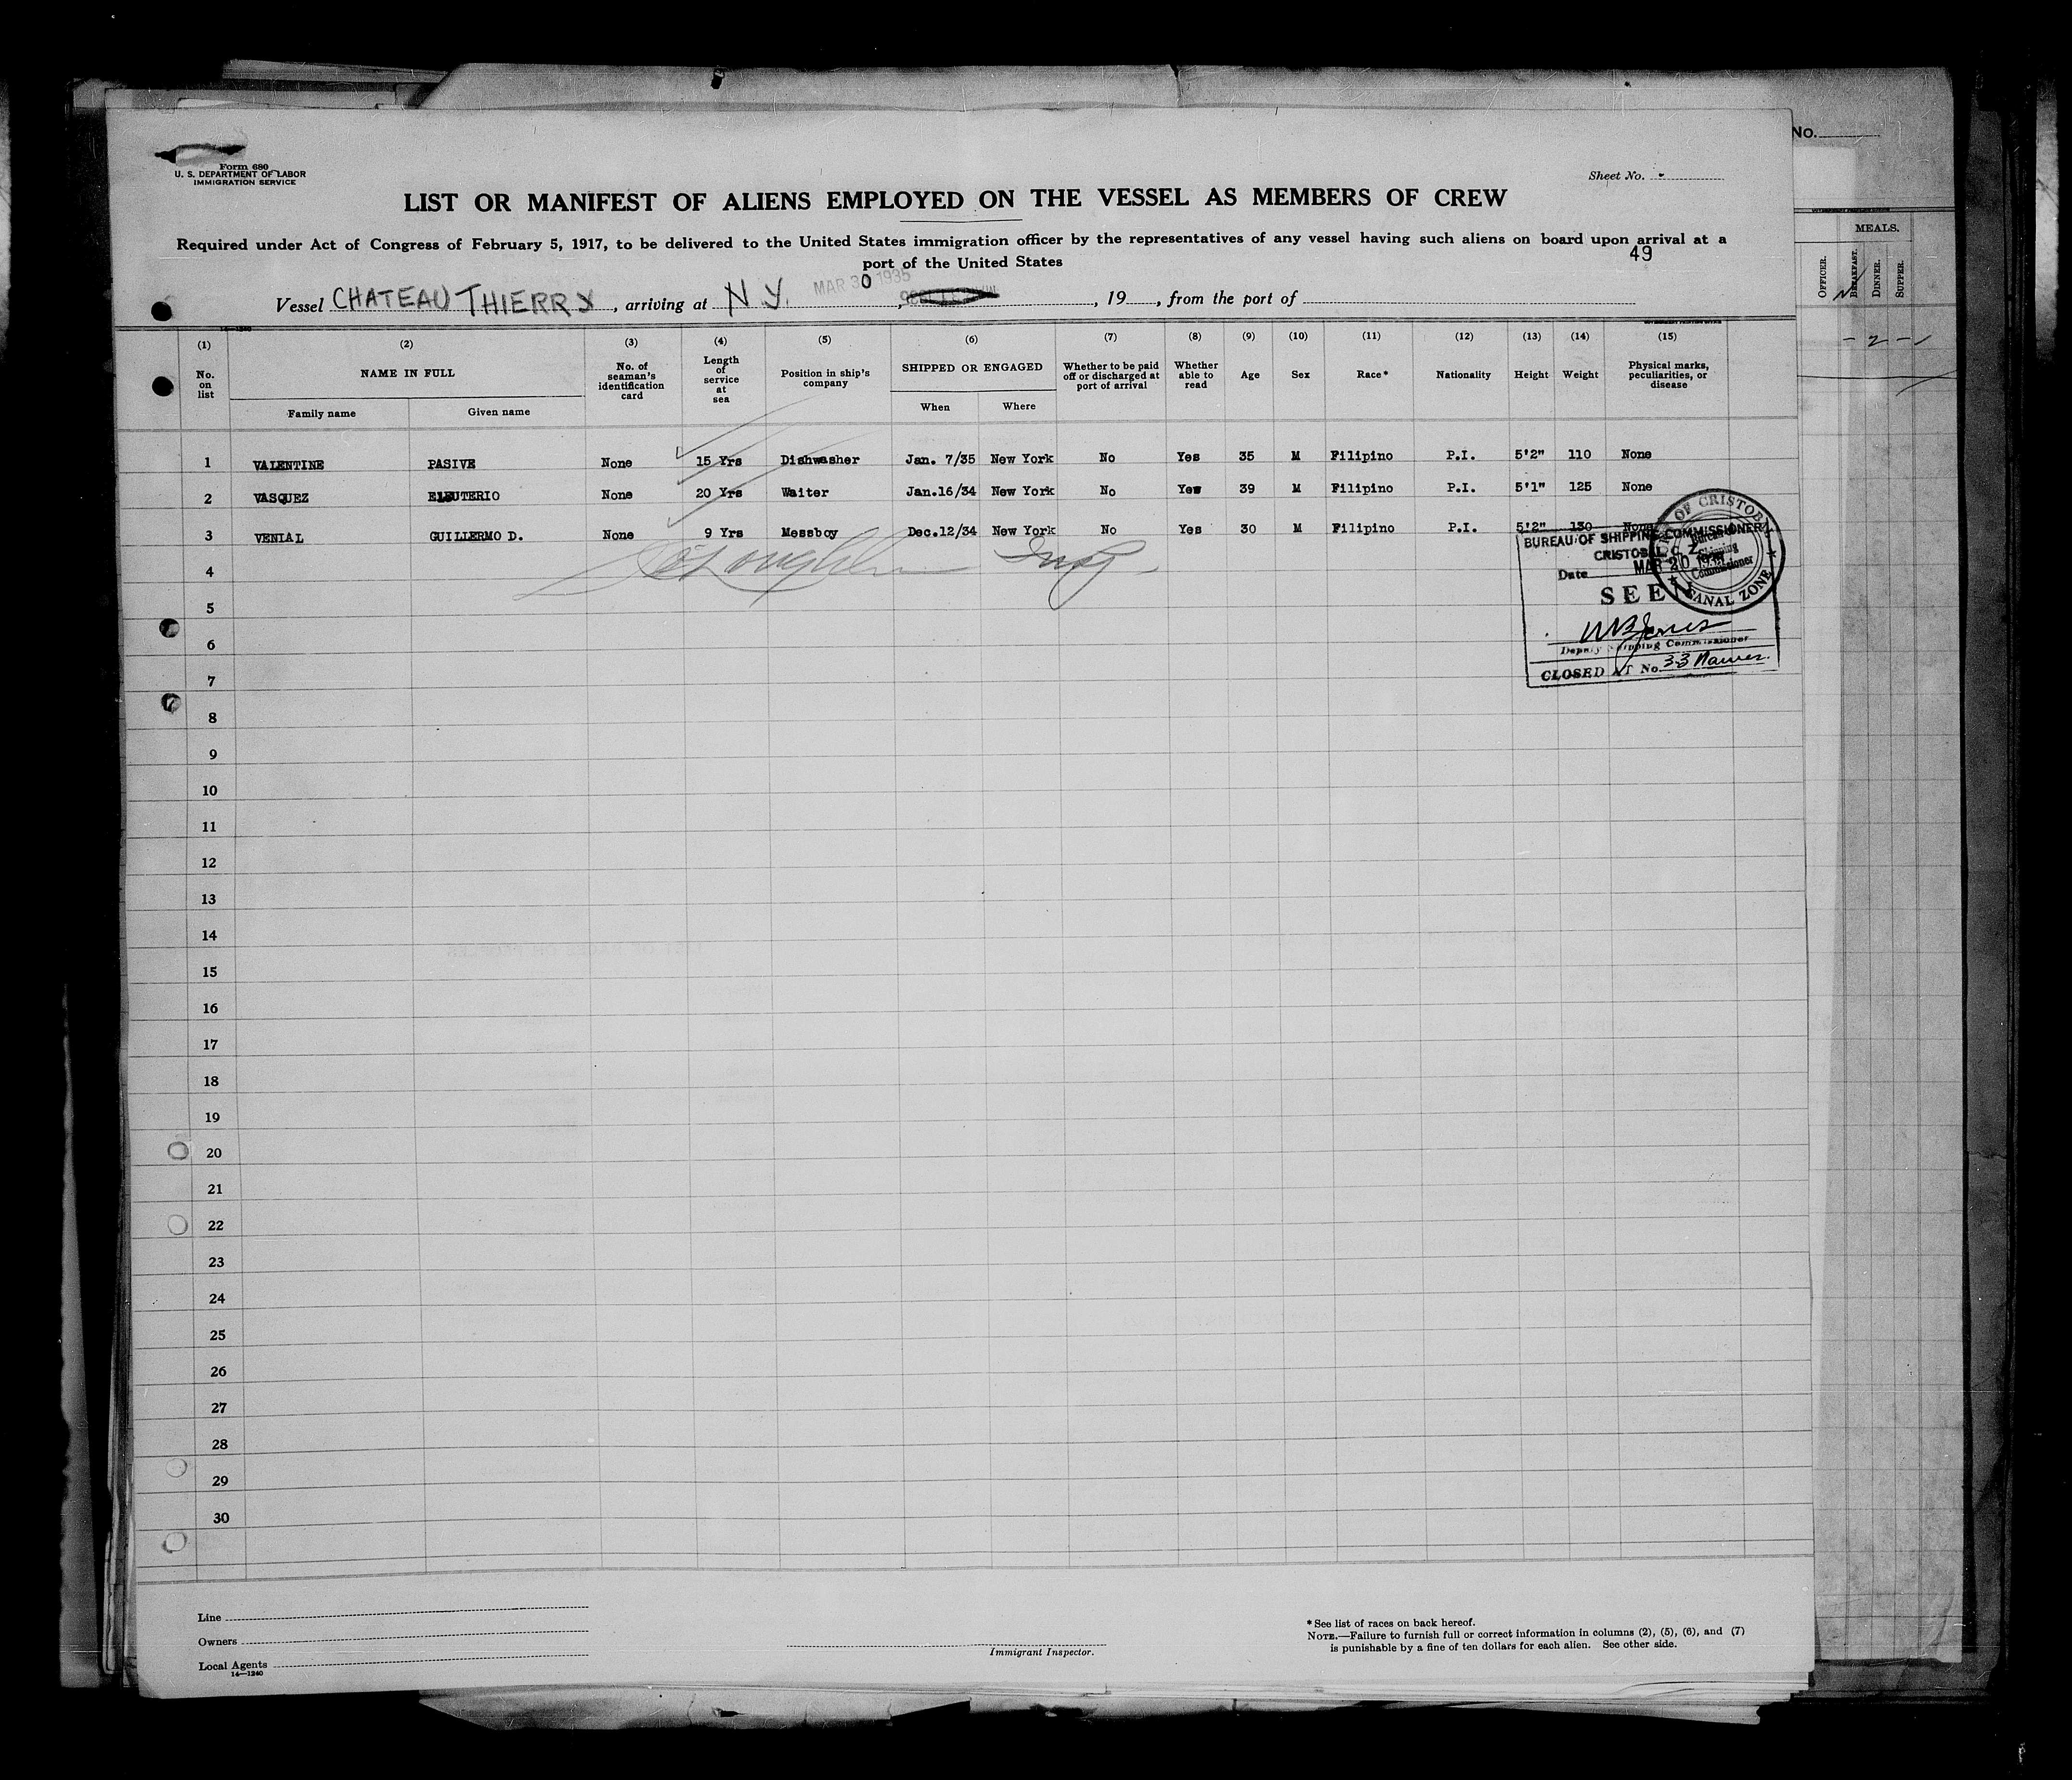 No.
Form 680
U. S. DEPARTMENT OF LABOR
IMMIGRATION SERVICE
Sheet No.
LIST OR MANIFEST OF ALIENS EMPLOYED ON THE VESSEL AS MEMBERS OF CREW
Required under Act of Congress of February 5, 1917, to be delivered to the United States immigration officer by the representatives of any vessel having such aliens on board upon arrival at a
port of the United States
49
MAR 30 1935
Vessel CHATEAU THIERRY, arriving at N.Y. , 19 , from the port of
MEALS.
OFFICER. BREAKFAST. DINNER. SUPPER.
- 2 -
14-1240
(1) (2) (3) (4) (5) (6) (7) (8) (9) (10) (11) (12) (13) (14) (15)
No. on list NAME IN FULL No. of seaman's identification card Length of service at sea Position in ship's company SHIPPED OR ENGAGED Whether to be paid off or discharged at port of arrival Whether able to read Age Sex Race* Nationality Height Weight Physical marks, peculiarities, or disease
Family name Given name When Where
1 VALENTINE PASIVE None 15 Yrs Dishwasher Jan. 7/35 New York No Yes 35 M Filipino P.I. 5'2" 110 None
2 VASQUEZ ELEUTERIO None 20 Yrs Waiter Jan.16/34 New York No Yes 39 M Filipino P.I. 5'1" 125 None
3 VENIAL GUILLERMO D. None 9 Yrs Messboy Dec.12/34 New York No Yes 30 M Filipino P.I. 5'2" 130 None
Insp
BUREAU OF SHIPPING COMMISSIONER
CRISTOBAL, C. Z.
Date MAR 20 1935
SEEN
Deputy Shipping Commissioner
CLOSED AT No. 33
OF CRISTOBAL
Shipping
Commissioner
CANAL ZONE
4
5
6
7
8
9
10
11
12
13
14
15
16
17
18
19
20
21
22
23
24
25
26
27
28
29
30
Line
Owners
Local Agents
14—1240
Immigrant Inspector.
* See list of races on back hereof.
NOTE.—Failure to furnish full or correct information in columns (2), (5), (6), and (7)
is punishable by a fine of ten dollars for each alien. See other side.